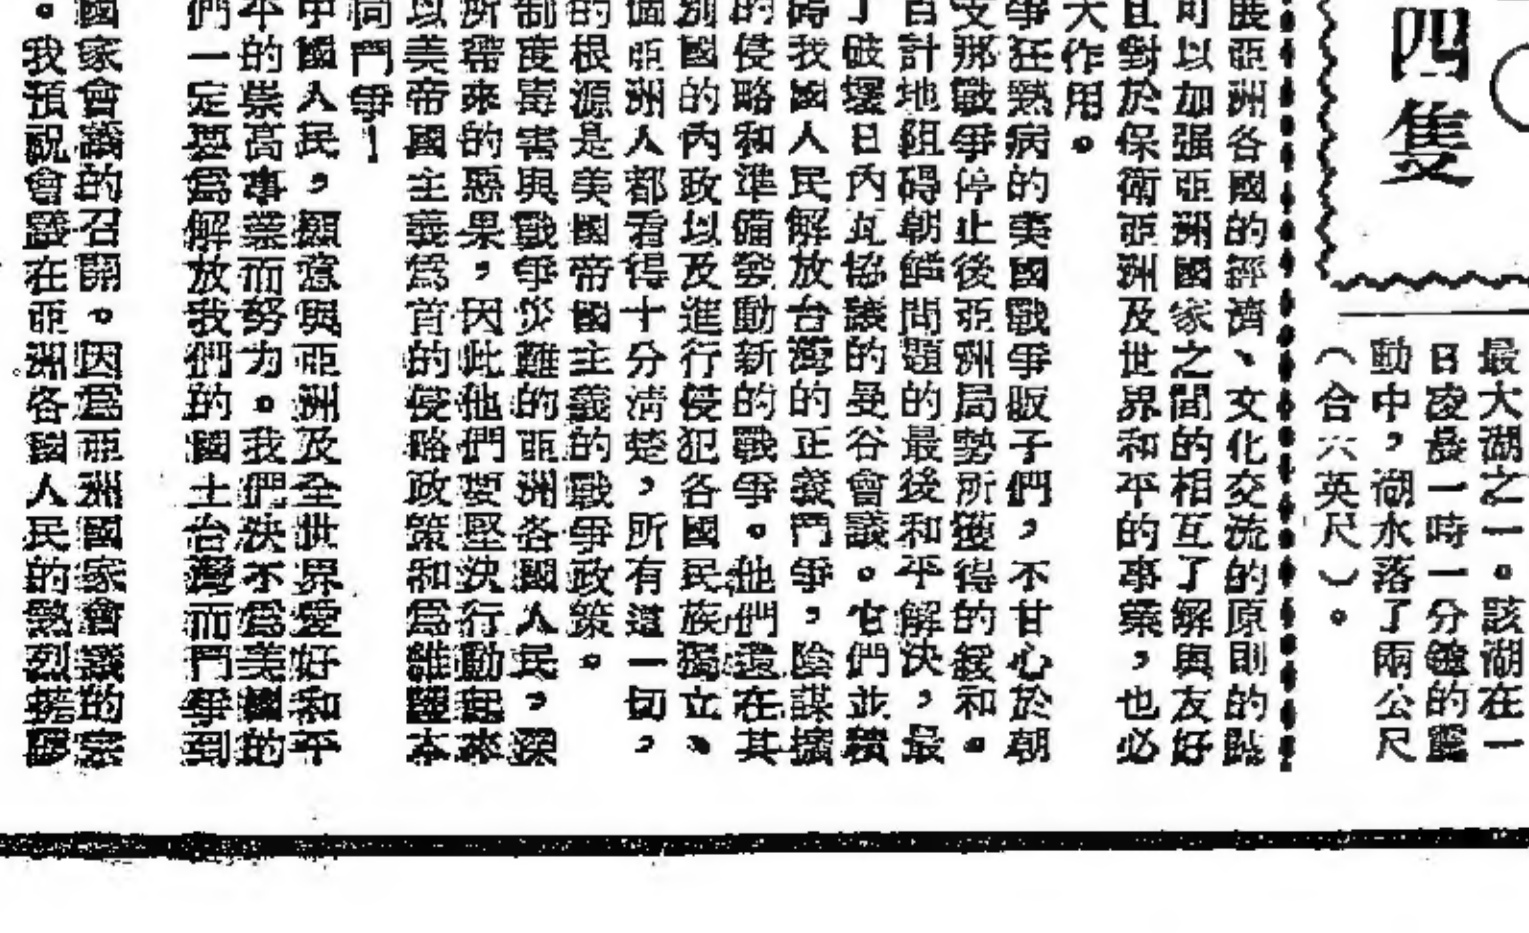 四隻
最大湖之一。該湖在一
日凌晨一時一分鐘的震
動中，湖水落了兩公尺
（合六英尺）。
展亞洲各國的經濟、文化交流的原則的貼
可以加强亞洲國家之間的相互了解與友好
且對於保衛亞洲及世界和平的事業，也必
大作用。
爭狂熱病的美國戰爭販子們，不甘心於朝
支那戰爭停止後亞洲局勢所獲得的緩和。
百計地阻碍朝鮮問題的最後和平解決，最
了破壞日內瓦協議的曼谷會議。它們並積
碍我國人民解放台灣的正義鬥爭，陰謀擴
的侵略和準備發動新的戰爭。他們還在其
別國的內政以及進行侵犯各國民族獨立、
個亞洲人都看得十分清楚，所有這一切，
的根源是美國帝國主義的戰爭政策。
制度毒害與戰爭災難的亞洲各國人民，深
所帶來的惡果，因此他們要堅決行動起來
以美帝國主義爲首的侵略政策和爲維護本
同鬥爭！
中國人民，願意與亞洲及全世界愛好和平
平的崇高事業而努力。我們決不爲美國的
們一定要爲解放我們的國土台灣而鬥爭到
國家會議的召開。因爲亞洲國家會議的宗
。我預祝會議在亞洲各國人民的熱烈擁護